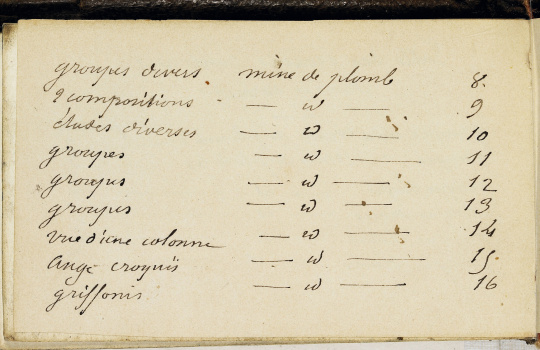 groupes divers mine de plomb 8.
2 compositions — id — 9
études diverses — id — 10
groupes — id — 11
groupes — id — 12
groupes — id — 13
vue d'une colonne — id — 14
ange croquis — id — 15
griffonis — id — 16